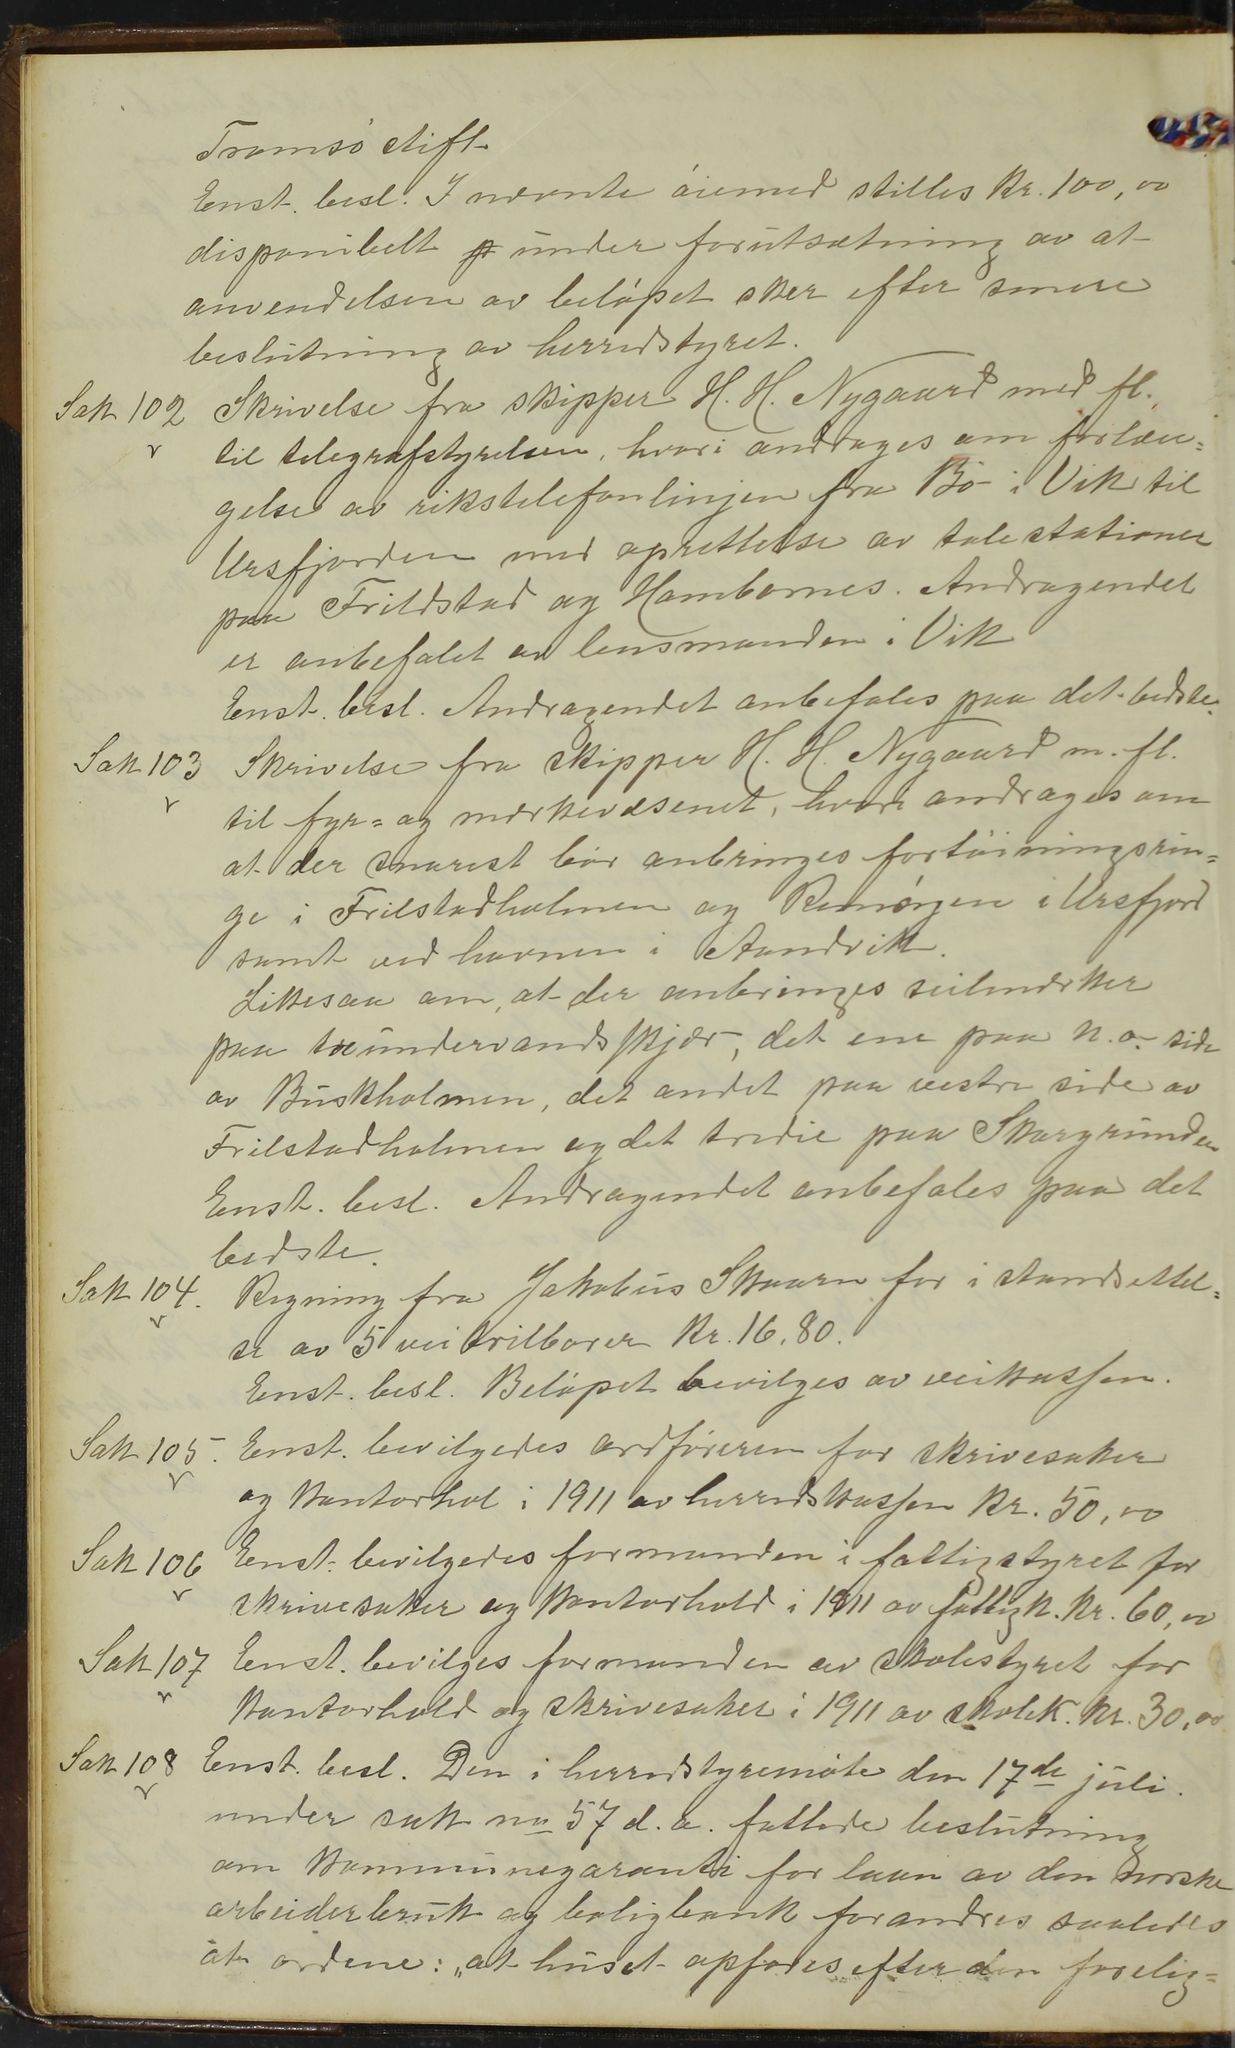 Tromsö stift
Enst. besl. I nævnte öiemed stilles kr. 100,00
disponibelt under forutsætning av at
anvendelsen av belöpet sker efter senere
beslutning av herredstyret.
Sak 102 Skrivelse fra skipper H. H. Nygaard med fl.
til telegrafstyrelsen, hvori andrages om forlæn-
gelse av rikstelefonlinjen fra Bö i Vik til
Ursfjorden med oprettelse av talestationer
paa Frilstad og Hambornes. Andragendet
er anbefalet av lensmanden i Vik
Enst. besl. Andragendet anbefales paa det bedste.
Sak 103 Skrivelse fra skipper H. H. Nygaard m. fl.
til fyr- og merkevæsenet, hvori andrages om
at der snarest bör anbringes fortöiningsrin-
ge i Frilstadholmen og i Ursfjord
samt ved havnen i Aandvik.
Likesaa om, at der anbringes seilmerker
paa undervandsskjær, det ene paa n.o. side
av Buskholmen, det andet paa vestre side av
Frilstadholmen og det tredie paa Skargrunden
Enst. besl. Andragendet anbefales paa det
bedste.
Sak 104. Regning fra Jakobus Skaarn for istandsettel-
se av 5 veitrilborer kr. 16,80.
Enst. besl. Belöpet bevilges av veikassen.
Sak 105. Enst. bevilgedes ordföreren for skrivesaker
og kontorhol i 1911 av herredskassen kr. 50,00
Sak 106 Enst. bevilgedes formanden i fattigstyret for
skrivesaker og kontorhold i 1911 av fattigk. kr. 60,00
Sak 107 Enst. bevilges formanden av skolestyret for
kontorhold og skrivesaker i 1911 av skolek. kr. 30,00
Sak 108 Enst. besl. Den i herredstyremöte den 17de juli
under sak no 57 d. a. fattede beslutning
om kommunegaranti for laan av den norske
arbeiderbruk og boligbank forandres saaledes
at ordene: „at huset opföres efter den forelig-